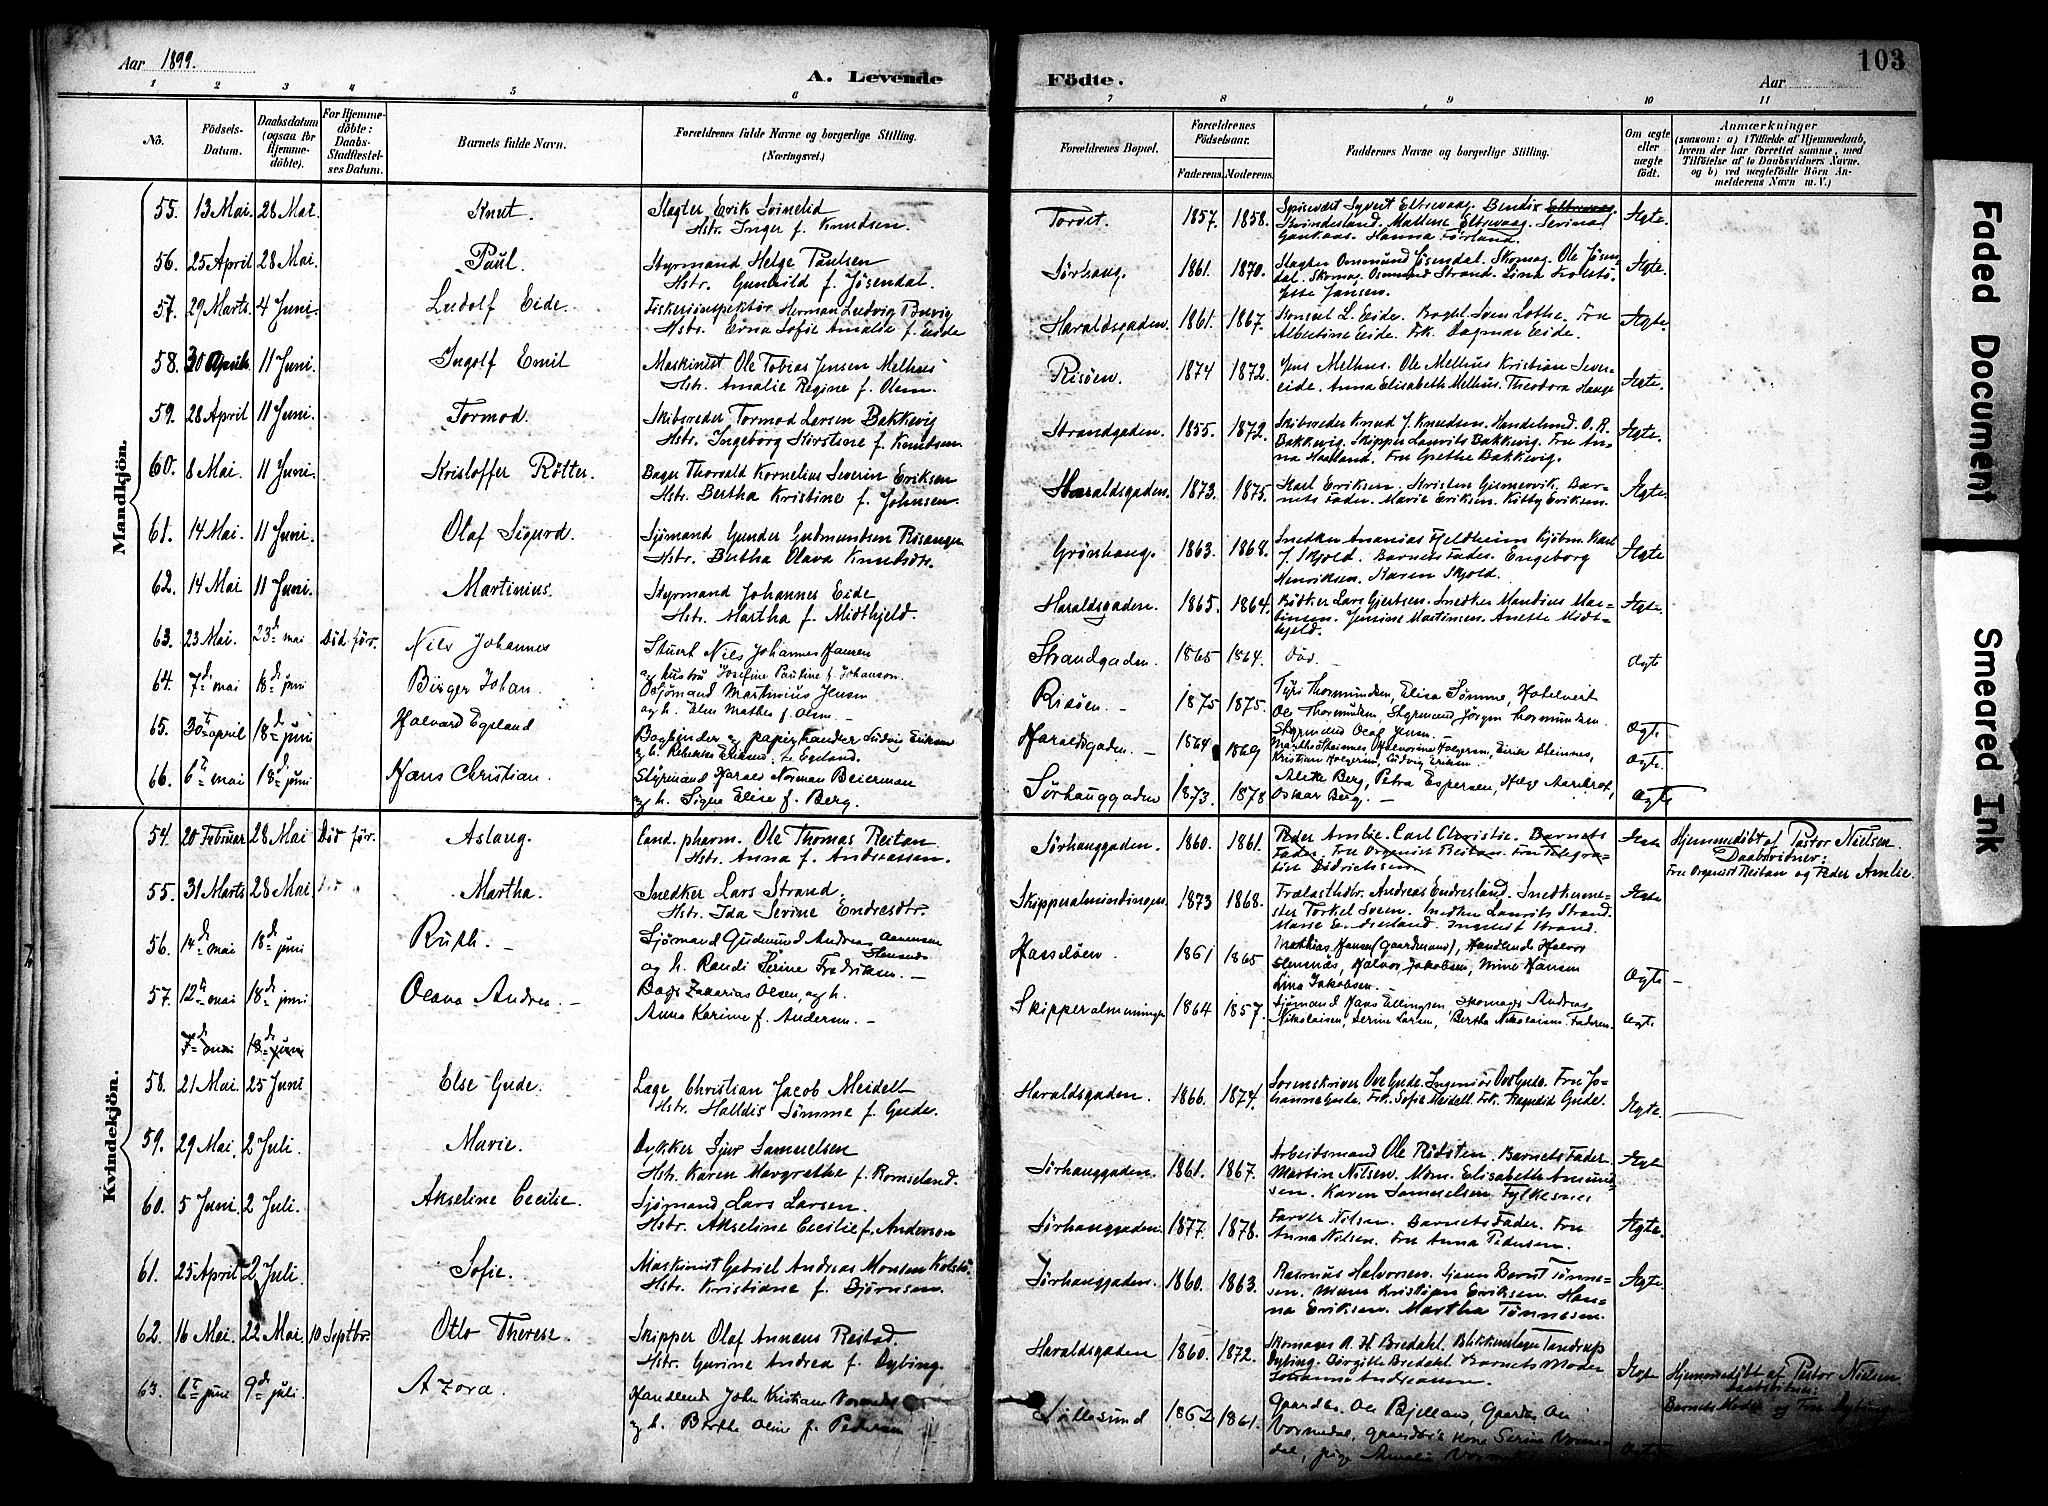 Aar 1899.
A. Levende
1 2 3 4 5 6
No. Födsels-Datum. Daabsdatum (ogsaa for Hjemmedöbte). For Hjemmedöbte: Daabs-Stadfæstelses Datum. Barnets fulde Navn. Forældrenes fulde Navne og borgerlige Stilling. (Næringsvei.)
Mandkjön.
55. 13 Mai. 28 Mai. Knut. Slagter Erik Svinelid
Hstr. Inger f. Knudsen.
56. 25 April 28 Mai. Paul. Styrmand Helge Paulsen
Hstr. Gunhild f. Jøsendal.
57. 29 Marts 4 Juni. Ludolf Eide. Fiskeriinspektør Herman Ludvig Buvig
Hstr. Erna Sofie Amalie f. Eide
58. 30 April 11 Juni. Ingolf Emil Maskinist Ole Tobias Jensen Melhus
Hstr. Amalie Regine f. Olsen.
59. 28 April 11 Juni. Tormod. Skibsreder Tormod Larsen Bakkevig
Hstr. Ingeborg Kirstine f. Knudsen
60. 8 Mai. 11 Juni. Kristoffer Røtter. Bager Thorvald Kornelius Severin Eriksen
Hstr. Bertha Kristine f. Johnsen.
61. 14 Mai. 11 Juni. Olaf Sigurd. Sjømand Gunder Gudmundsen Risanger
Hstr. Bertha Olava Knutsdtr.
62. 14 Mai 11 Juni. Martinius. Styrmand Johannes Eide
Hstr. Martha f. Midthjeld.
63. 23 Mai. 23de mai Død før. Nils Johannes Stuert Nils Johannes Hansen
og hustru Josefine Pauline f. Johanson.
64. 7de mai 18de juni Birger Johan. Sjømand Martinius Jensen
og h. Elen Mathea f. Olsen. —
65. 30te april 18de juni Halvard Egeland Bogbinder og papirhandler Ludvig Eriksen
og h. Rebekka Eriksen, f. Egeland.
66. 6te mai 18de juni Hans Christian. Styrmand Harald Norman Beierman
og h. Signe Elise f. Berg.
Kvindekjön.
54. 20 Februar 28 Mai Død før. Aslaug. Cand. pharm. Ole Thomas Reitan
Hstr. Anna f. Andreassen.
55. 31 Marts 28 Mai. Martha. Snedker Lars Strand.
Hstr. Ida Serine Endresdtr.
56. 14de mai 18de juni Ruth. — Sjømand Gudmund Andreas Aanensen Stensnes
og h. Randi Serine Fredriksen. —
57. 12te mai 18de juni Olava Andrea. — Bager Zakarias Olsen, og h.
Anna Karine f. Andersen. —
7de mai 18de juni
58. 21 Mai. 25 Juni Else Gude. Læge Christian Jacob Meidell
Hstr. Halldis Sømme f. Gude.
59. 29 Mai. 2 Juli. Marie. Dykker Sjur Samuelsen
Hstr. Karen Margrethe f. Romseland.
60. 5 Juni 2 Juli. Akseline Cecilie. Sjømand Lars Larsen.
Hstr. Akseline Cecilie f. Anderson
61. 25 April 2 Juli. Sofie. Maskinist Gabriel Andreas Monsen Kolstø
Hstr. Kristiane f. Bjørnsen.
62. 16 Mai. 22 Mai. 10 Septbr. Otto Therese. Skipper Olaf Annæus Reistad
Hstr. Gurine Andrea f. Dybing.
63. 6te juni 9de juli. Azora. Handlende John Kristian Vormedal
og h. Berthe Oline f. Pedersen
103
Födte.
Aar
7 8 9 10 11
Forældrenes Bopæl. Forældrenes Födselsaar. Faderens. Moderens. Faddernes Navne og borgerlige Stilling. Om ægte eller uægte födt. Anmærkninger (saasom: a) i Tilfælde af Hjemmedaab, hvem der har forrettet samme, med Tilföielse af to Daabsvidners Navne. og b) ved uægtefödte Börn Anmelderens Navn m. V.)
Torvet. 1857. 1858. Spisevært Syvert Eltrevaag. Bendix Eltrevaag. Ægte.
Kvindesland. Mallene Eltrevaag. Sevina
Hanna Førland.
Sørhaug. 1861. 1870. Slagter Ommund Jøsendal. Skomag. Ole Jøsendal. Ægte.
Skomag. Osmund Strand. Lina
Jansen.
Haraldsgaden. 1861. 1867. Konsul L. Eide. Bogh. Søren Lothe. Fru Ægte.
Albertine Eide. Frk. Dagmar Eide.
Risøen. 1874 1872. Jens Melhus. Ole Melhus Kristian Severeide. Ægte.
Anna Elisabeth Melhus. Theodora Hauge
Strandgaden. 1855. 1872. Skibsreder Knud J. Knudsen. Handelsmd. O. R. Ægte.
Bakkevig. Skipper Laurits Bakkevig. Fru Anna
Haaland. Fru Grethe Bakkevig.
Haraldsgaden. 1873. 1875. Karl Eriksen. Kristen Gismervik. Barnets Ægte.
Fader. Marie Eriksen. Kitty Eriksen.
Grønhaug. 1863. 1868. Snedker Ananias Fjeldheim Kjøbm. Karl Ægte
J. Skjold. Barnets Fader. Engeborg
Henriksen. Karen Skjold.
Haraldsgaden. 1865. 1864. Bødker Lars Gjertsen. Snedker Mandius Martinsen. Ægte.
Jensine Martinsen. Anette Midthjeld.
Strandgaden. 1865 1864. Død. Ægte
Risøen. — 1875 1875. Tyri Thormundsen, Elisa Sømme, Hotelvert
Ole Thormundsen, Styrmand Jørgen Thormundsen. Ægte.
Styrmand Olaf Jensen. —
Haraldsgaden. — 1864 1869 Martha Steinnes, Holgersen, Eirik Steinnes,
Kristian Holgersen, Ludvig Eriksen. Ægte.
Sørhauggaden 1873. 1878 Alette Berg, Petra Espersen, Helge Aarekrot,
Oskar Berg. — Ægte
Sørhauggaden. 1860. 1861. Peder Amlie. Carl Christie. Barnets Ægte Hjemmedøbt af Pastor Nielsen.
Fader. Fru Organist Reitan. Fru Daabsvidner:
Didrichsen Fru Organist Reitan og Peder Amlie.
Skipperalmindingen. 1873 1868. Frælasthdlr. Andreas Endresland. Snedkermester Ægte
Torkel Sveen. Snedker Laurits Strand.
Marie Endresland. Ingeborg Strand.
Hasseløen. 1861 1865 Mathias Hansen (gaardmand), Handlende Halvor
Stensnæs, Halvor Jakobsen, Mine Hansen Ægte —
Lina Jakobsen. —
Skipperalmenninge 1864 1857. Sjømand Hans Ellingsen, Skomager Andreas
Nikolaisen, Serine Larsen, Bertha Nikolaisen. Faderen. Ægte
Haraldsgaden. 1866. 1874. Sorenskriver Ove Gude. Ingeniør Ove Gude. Fru Johanne
Gude. Frk. Sofie Meidell. Frk. Ragnhild Gude. Ægte.
Sørhauggaden. 1861. 1867. Arbeidsmand Ole Rødsten. Barnets Fader. Ægte
Martin Nilsen. Mdm. Elisabeth Amundsen.
Karen Samuelsen Fylkesnes
Sørhauggaden. 1877. 1878. Farver Nilsen. Barnets Fader. Fru Ægte.
Anna Nilsen. Fru Anna Pedersen.
Sørhauggaden. 1860. 1863. Rasmus Halvorsen. Sjøm Bernt Tønnesen. Ægte.
Mdm Kristian Eriksen. Hanna
Eriksen. Martha Tønnesen.
Haraldsgaden 1860. 1872. Skomager A. H. Bredahl. Blikkenslager Tandrup
Dybing. Birgitte Bredahl. Barnets Moder Ægte Hjemmedøbt af Pastor Nielsen
Johanne Andreassen. Daabsvidner:
Barnets Moder og Fru Dybing
Lillesund 1862 1861. Gaardbr. Ole Bjelland, Gaardbr. Ole
Vormedal, gaardbr's kone Serine Vormedal,
pige Amalie Vormedal Ægte
Faded Document
Smeared Ink